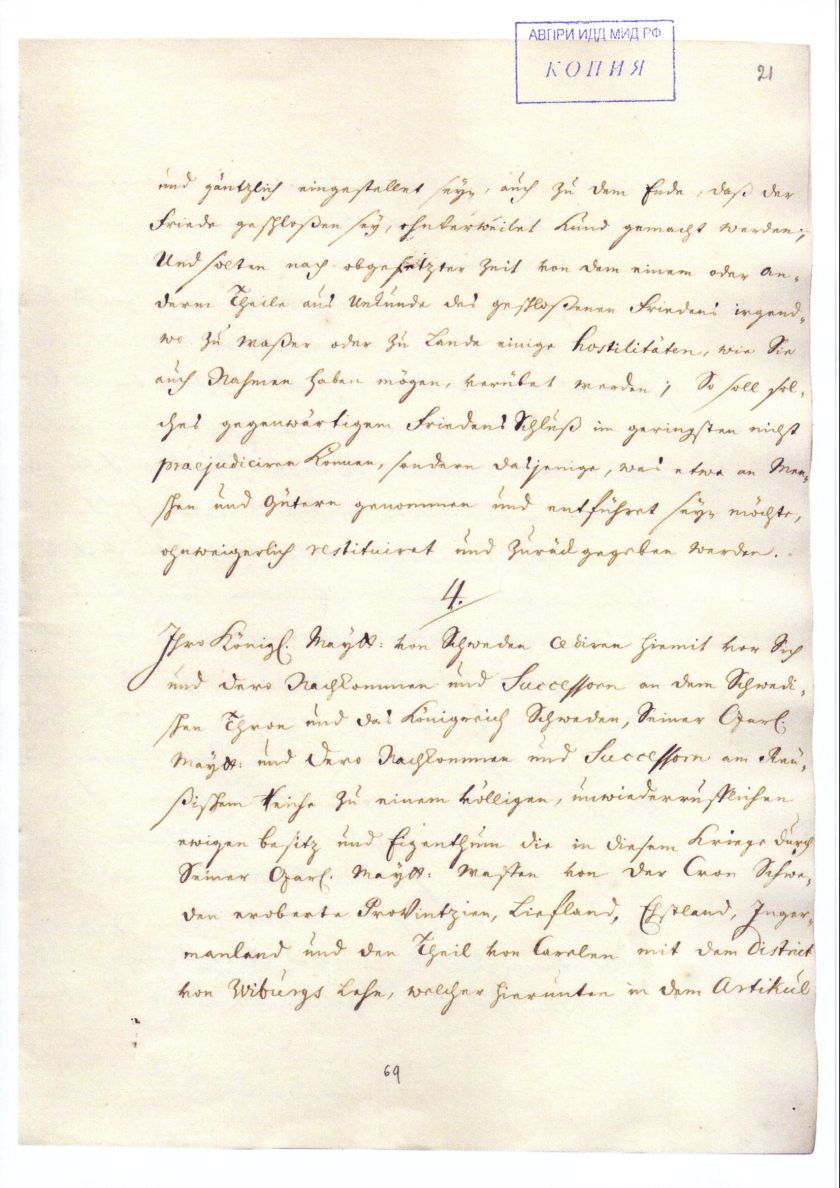 АВПРИ ИДД МИД РФ
КОПИЯ
21
und gäntzlich eingestellet seyn, auch zu dem Ende, daß der
Friede geschloßen sey, ohnverweilet kund gemacht werden;
Und solten nach obgesetzter Zeit von dem einem oder an-
derm Theile aus Unkunde des geschloßenen Friedens irgend-
wo zu Waßer oder zu Lande einige hostilitäten, wie Sie
auch Nahmen haben mögen, verübet werden; So soll sol-
ches gegenwärtigem Friedens Schluß im geringsten nicht
praejudiciren können, sondern dasjenige, was etwa an Men-
schen und Gütern genommen und entführet seyn möchte,
ohnweigerlich restituiret und zurück gegeben werden.
4.
Ihro Königl. Maytt: von Schweden cediren hiemit vor Sich
und dero Nachkommen und Successorn an dem Schwedi-
schen Thron und das Königreich Schweden, Seiner Czarl.
Maytt: und dero Nachkommen und Successorn am Reu-
ßischem Reiche zu einem völligen, unwiederrufflichen
ewigen besitz und Eigenthum die in diesem Kriege durch
Seiner Czarl. Maytt: Waffen von der Cron Schwe-
den eroberte Provintzien, Liefland, Ehstland, Inger-
manland und den Theil von Carelen mit dem District
von Wiburgs Lehn, welcher hierunten in dem Artikul
69